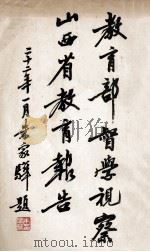 教育部督學視察
山西省教育報告
二十二年一月朱家驊題